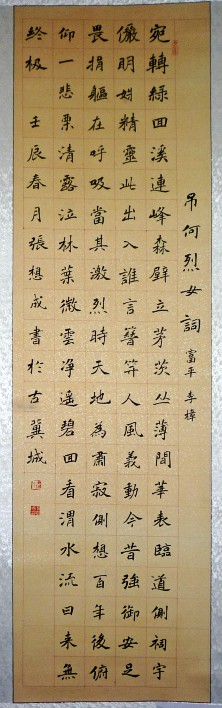 吊何烈女詞 富平 李樟
宛轉綠回溪連峰森壁立茅茨丛薄間華表臨道側祠宇
儼明妝精靈此出入誰言簪笄人風義動今昔強御安足
畏捐軀在呼吸當其激烈時天地為肅寂側想百年後俯
仰一悲栗清露泣林葉微雲净遥碧回看渭水流日来無
終极 壬辰春月張想成書於古冀城